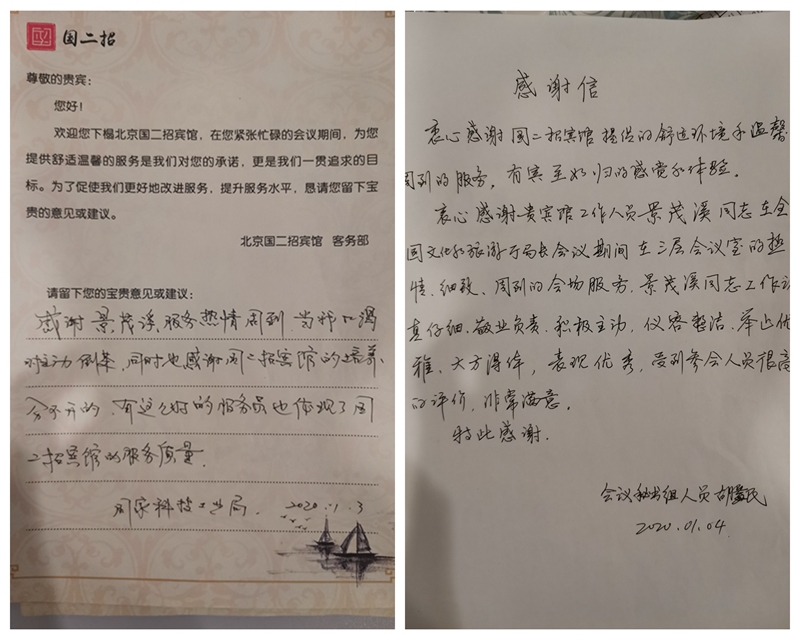 国二招
尊敬的贵宾：
您好！
欢迎您下榻北京国二招宾馆，在您紧张忙碌的会议期间，为您
提供舒适温馨的服务是我们对您的承诺，更是我们一贯追求的目
标。为了促使我们更好地改进服务，提升服务水平，恳请您留下宝
贵的意见或建议。
北京国二招宾馆 客务部
请留下您的宝贵意见或建议：
感谢景茂溪服务热情周到
主动倒茶，同时也感谢国二招宾馆的培养
分不开的，有这么好的服务员也体现了国
二招宾馆的服务质量。
国家科技工业局. 2020.1.3
感谢信
衷心感谢国二招宾馆提供的舒适环境和温馨
周到的服务，有宾至如归的感觉和体验。
衷心感谢贵宾馆工作人员景茂溪同志在全
国文化和旅游厅局长会议期间在三层会议室的热
情、细致、周到的会场服务，景茂溪同志工作认
真仔细、敬业负责、积极主动，仪容整洁、举止优
雅、大方得体，表现优秀，受到参会人员很高
的评价，非常满意。
特此感谢.
会议秘书组人员 胡
2020.01.04.